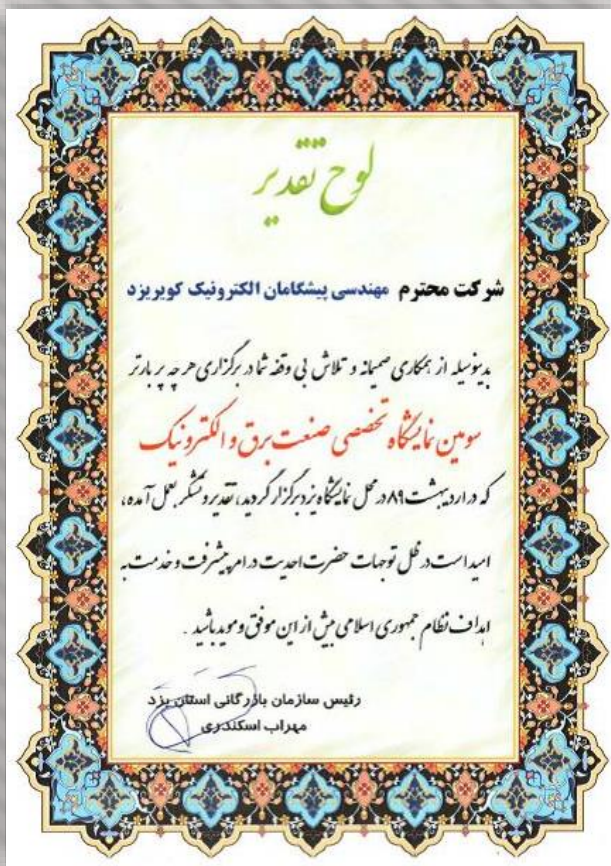 لوح تقدیر
شرکت محترم مهندسی پیشگامان الکترونیک کویریزد
بدینوسیله از همکاری صمیمانه و تلاش بی وقفه شما در برگزاری هر چه پربارتر
سومین نمایشگاه تخصصی صنعت برق و الکترونیک
که در اردیبهشت ۸۹ در محل نمایشگاه یزد برگزار گردید، تقدیر و تشکر بعمل آمده،
امید است در ظل توجهات حضرت احدیت در امر پیشرفت و خدمت به
اهداف نظام جمهوری اسلامی بیش از این موفق و موید باشید .
رئیس سازمان بازرگانی استان یزد
مهراب اسکندری